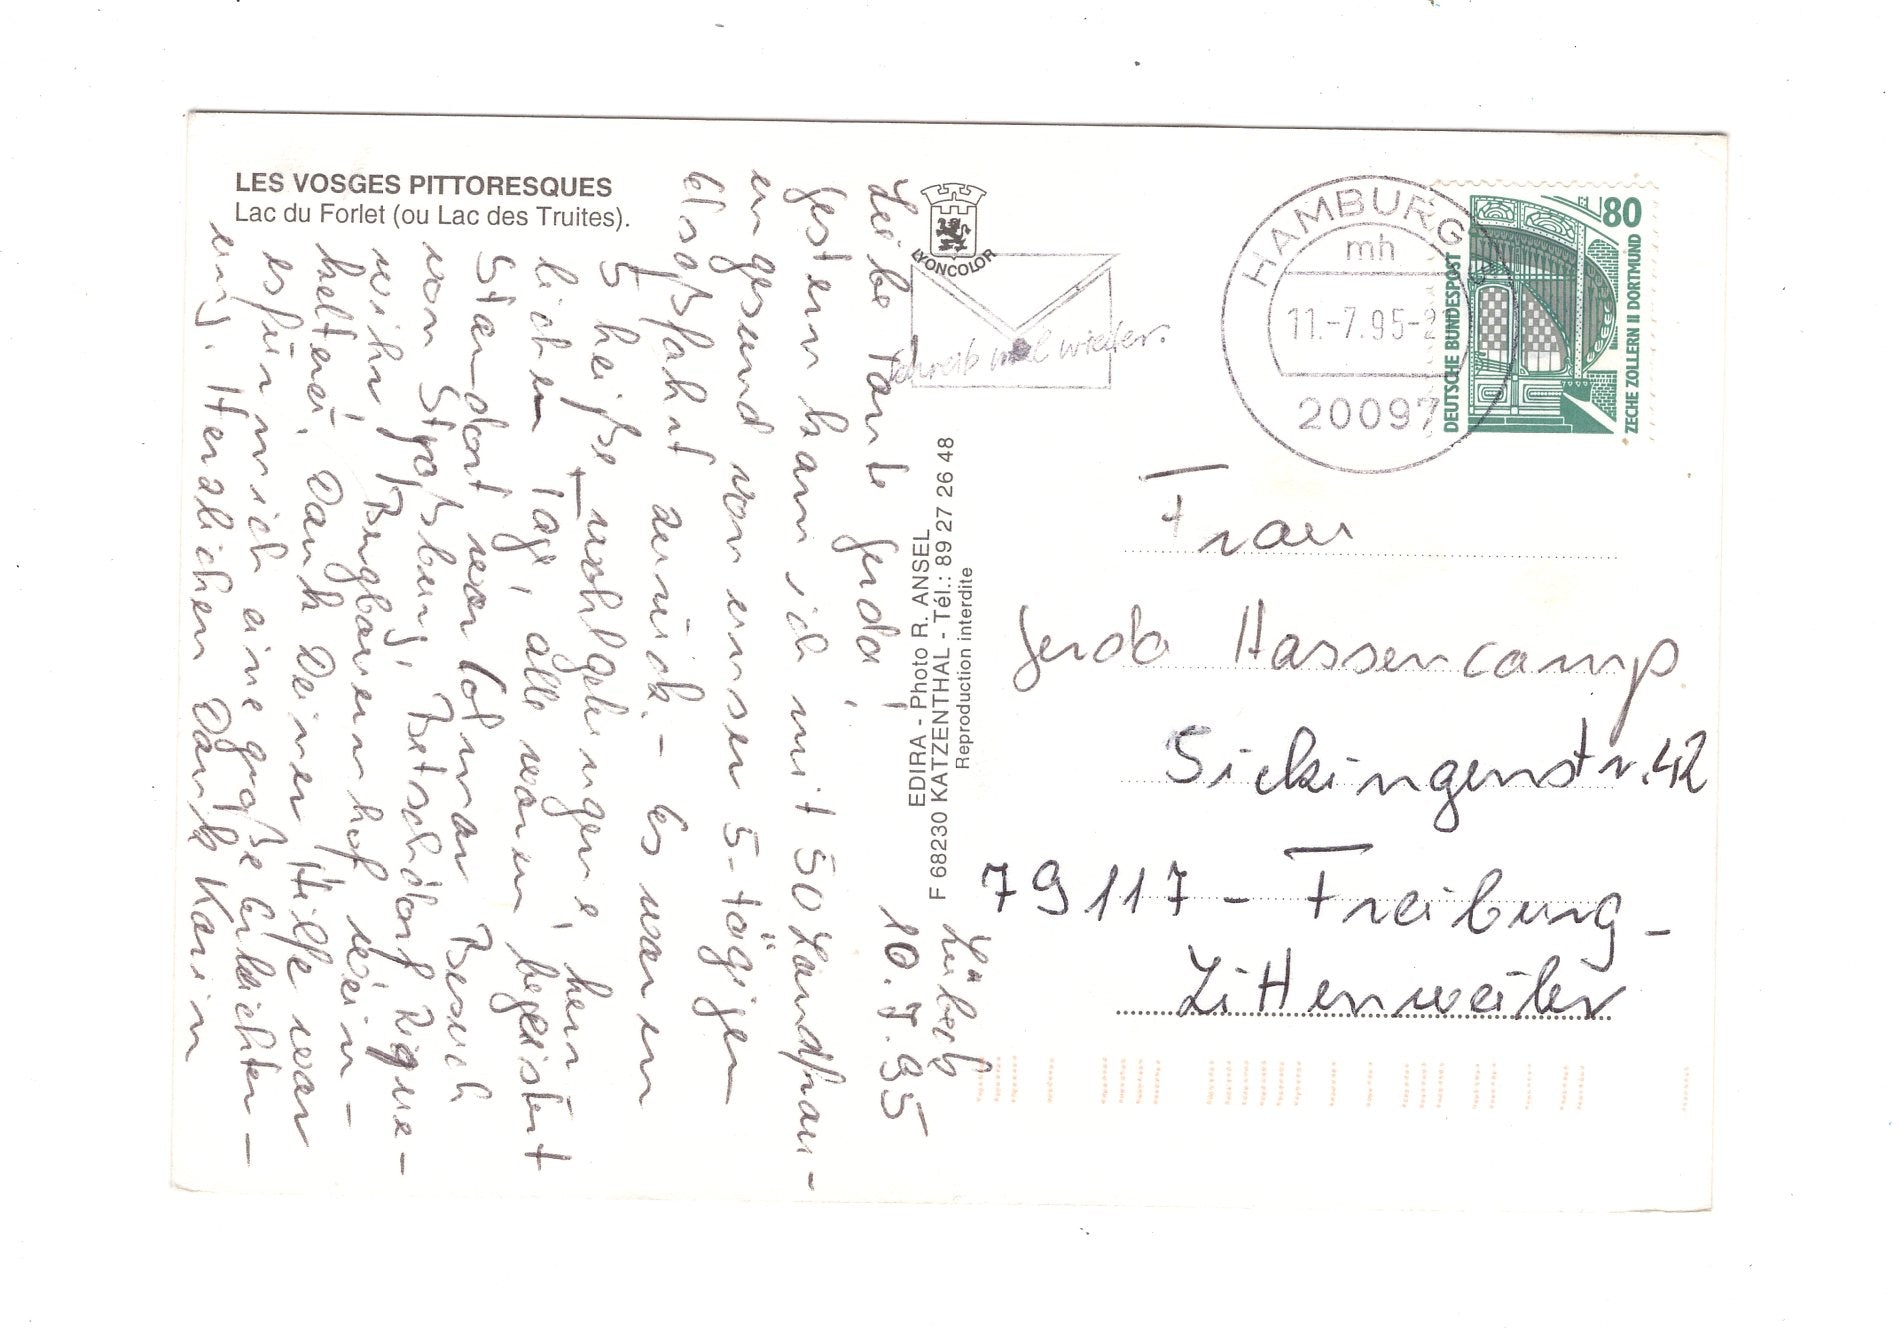 LES VOSGES PITTORESQUES
Lac du Forlet (ou Lac des Truites).
LYONCOLOR
Schreib mal wieder.
HAMBURG
mh
11.-7.95-2
20097
80
DEUTSCHE BUNDESPOST
ZECHE ZOLLERN II DORTMUND
EDIRA - Photo R. ANSEL
F 68230 KATZENTHAL - Tél.: 89 27 26 48
Reproduction interdite
Lübeck
10.7.95
Liebe Tante Gerda,
gestern kam ich mit 50 Landfrau-
en gesund von unser 5-tägigen
Elsaßfahrt zurück. - Es waren
5 heiße, wohlgelungene, herr
lichen Tage, alle waren begeistert
Standort war Colmar Besuch
von Straßburg, Betschdorf, Rique-
wihr, Bergbauernhof, Wein-
kellerei. Dank Deiner Hilfe war
es für mich eine große Erleichter-
ung. Herzlichen Dank Karin
Frau
Gerda Hassencamp
Sickingenstr. 42
79117 - Freiburg -
Littenweiler